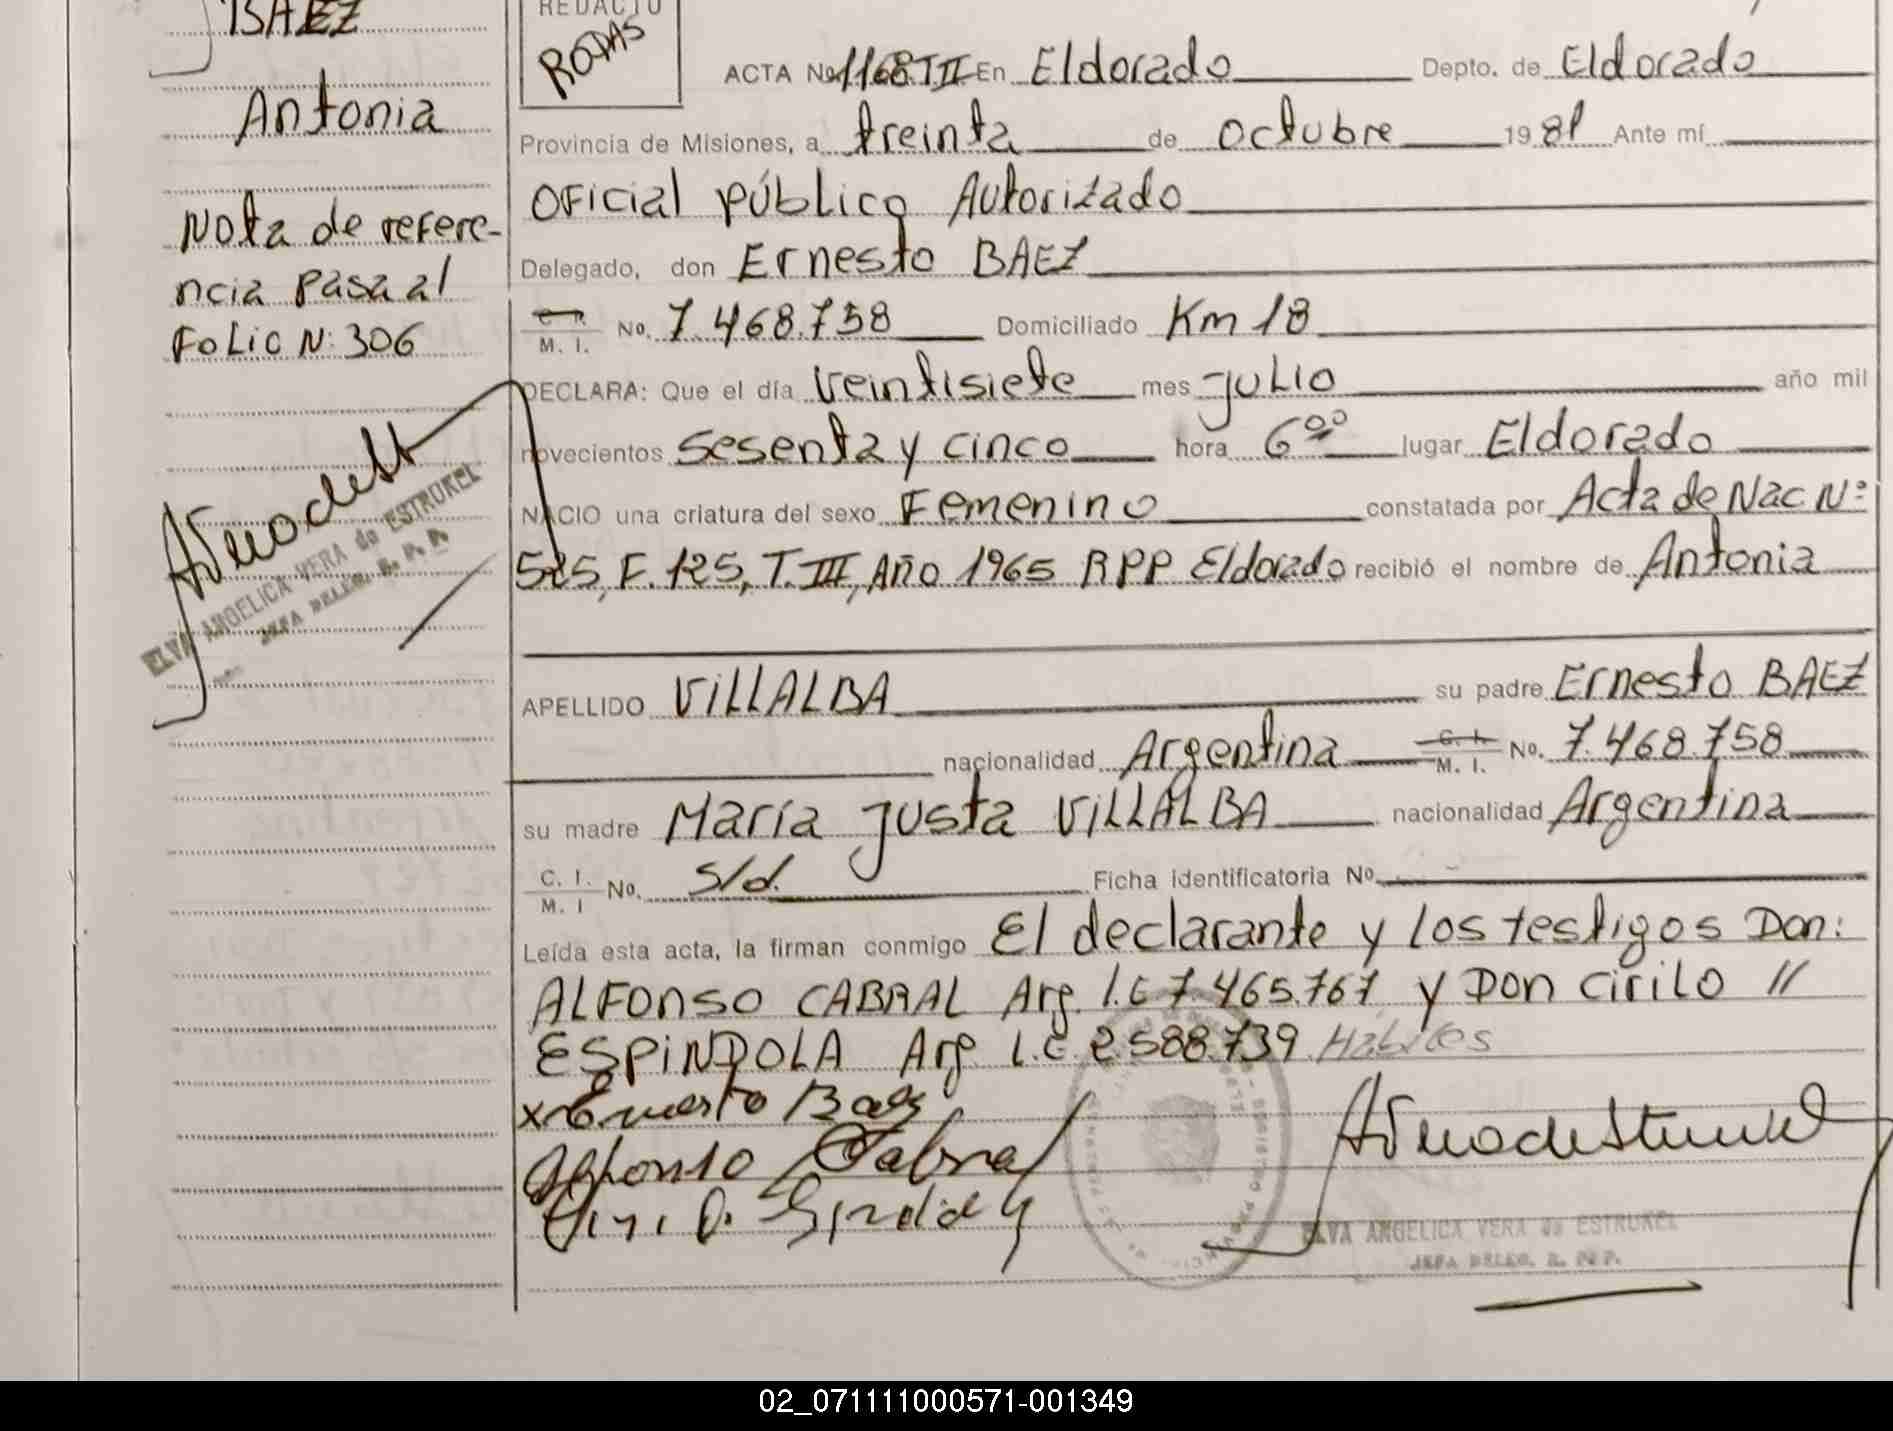 BAEZ
Antonia
Nota de refere-
ncia pasa al
Folio N: 306
ELVA ANGELICA VERA de ESTRUKEL
JEFA DELEG. R. P. P.
REDACTO
RODAS
ACTA No 1168 T II En Eldorado Depto. de Eldorado
Provincia de Misiones, a treinta de octubre 1981 Ante mí
Oficial público Autorizado
Delegado, don Ernesto BAEZ
C. I. M. I. No. 7.468.758 Domiciliado Km 18
DECLARA: Que el día veintisiete mes julio año mil
novecientos sesenta y cinco hora 6 oo lugar Eldorado
NACIO una criatura del sexo Femenino constatada por Acta de Nac Nº
525, F. 125, T. III, Año 1965 RPP Eldorado recibió el nombre de Antonia
APELLIDO VILLALBA su padre Ernesto BAEZ
nacionalidad Argentina C. I. M. I. No. 7.468.758
su madre María Justa VILLALBA nacionalidad Argentina
C. I. M. I No. s/d. Ficha identificatoria No
Leída esta acta, la firman conmigo El declarante y los testigos Don:
ALFONSO CABRAL Arg. l.E 7.465.767 y Don Cirilo //
ESPINDOLA Arg l.E. 2.588.739 Habiles
x Ernesto Baez
Alfonso Cabral
ELVA ANGELICA VERA de ESTRUKEL
JEFA DELEG. R. P. P.
02_071111000571-001349